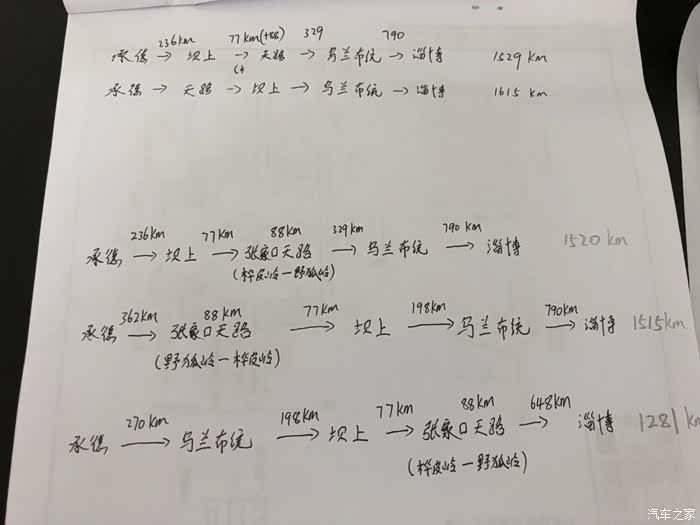 236km 77km(+88) 329 790
承德 → 坝上 → 天路 → 乌兰布统 → 淄博 1529 km
承德 → 天路 → 坝上 → 乌兰布统 → 淄博 1615 km
236km 77km 88km 329km 790km
承德 → 坝上 → 张家口天路 → 乌兰布统 → 淄博 1520km
(桦皮岭一野狐岭)
362km 88km 77km 198km 790km
承德 → 张家口天路 → 坝上 → 乌兰布统 → 淄博 1515km
(野狐岭一桦皮岭)
270km 198km 77km 88km 648km
承德 → 乌兰布统 → 坝上 → 张家口天路 → 淄博 1281km
(桦皮岭一野狐岭)
汽车之家